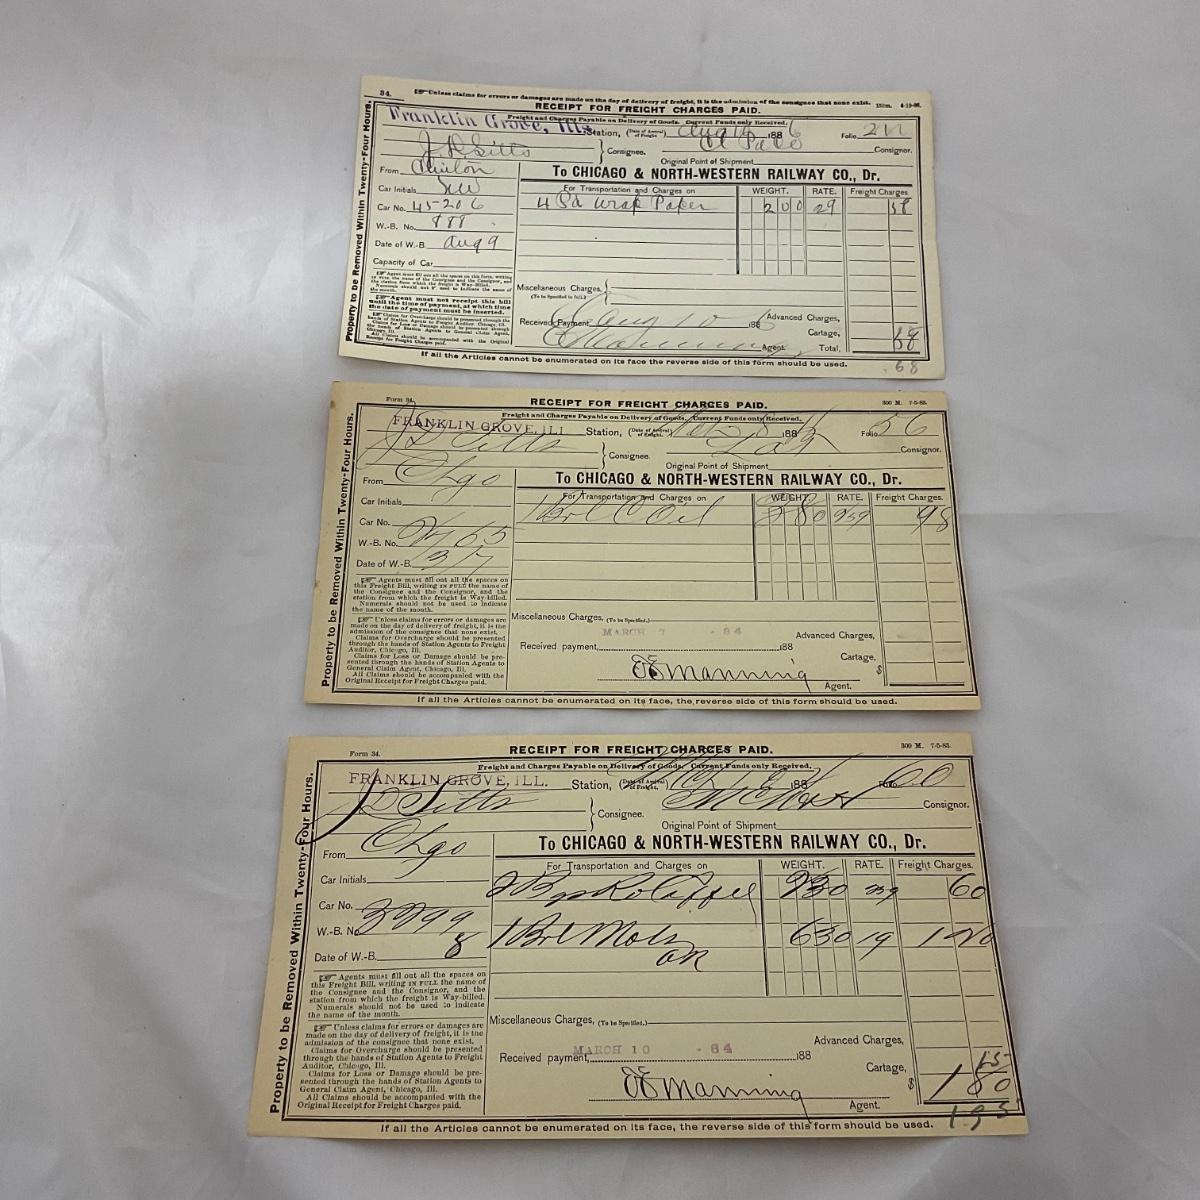 34. ☞ Unless claims for errors or damages are made on the day of delivery of freight, it is the admission of the consignee that none exist. 4-19-86.
RECEIPT FOR FREIGHT CHARGES PAID.
Freight and Charges Payable on Delivery of Goods. Current Funds only Received.
Franklin Grove, Ills. Station, (Date of Arrival of Freight.) Aug 10 1886 Folio
Consignee. Consignor.
Original Point of Shipment
From Clinton
To CHICAGO & NORTH-WESTERN RAILWAY CO., Dr.
Car Initials
For Transportation and Charges on WEIGHT. RATE. Freight Charges
Car No. 45206 4 Wrap Paper 200 29 58
W.-B. No. 888
Date of W.-B. Aug 9
Capacity of Car
☞ Agent must fill out all the spaces on this form, writing
Miscellaneous Charges,
(To be Specified in full.)
☞ Agent must not receipt this bill
until the time of payment, at which time
the date of payment must be inserted.
Received Payment, Aug 10 188 Advanced Charges,
Cartage,
Manning Agent. Total, 58
If all the Articles cannot be enumerated on its face the reverse side of this form should be used.
68
Property to be Removed Within Twenty-Four Hours.
Form 34. RECEIPT FOR FREIGHT CHARGES PAID. 300 M. 7-5-83.
Freight and Charges Payable on Delivery of Goods. Current Funds only Received.
FRANKLIN GROVE, ILL Station, (Date of Arrival of Freight.) 188 Folio 56
Consignee. Consignor.
Original Point of Shipment
From Chgo
To CHICAGO & NORTH-WESTERN RAILWAY CO., Dr.
Car Initials
For Transportation and Charges on WEIGHT. RATE. Freight Charges.
Car No. 1 Brl C Oil 98
W.-B. No.
Date of W.-B. 3/7
☞ Agents must fill out all the spaces on
this Freight Bill, writing IN FULL the name of
the Consignee and the Consignor, and the
station from which the freight is Way-billed.
Numerals should not be used to indicate
the name of the month.
☞ Unless claims for errors or damages are
made on the day of delivery of freight, it is the
admission of the consignee that none exist.
Claims for Overcharge should be presented
through the hands of Station Agents to Freight
Auditor, Chicago, Ill.
Claims for Loss or Damage should be pre-
sented through the hands of Station Agents to
General Claim Agent, Chicago, Ill.
All Claims should be accompanied with the
Original Receipt for Freight Charges paid.
Miscellaneous Charges, (To be Specified.)
MARCH 7 - 84 Advanced Charges,
Received payment, 188
Cartage,
Manning $
Agent.
If all the Articles cannot be enumerated on its face, the reverse side of this form should be used.
Property to be Removed Within Twenty-Four Hours.
Form 34. RECEIPT FOR FREIGHT CHARGES PAID. 300 M. 7-5-83.
Freight and Charges Payable on Delivery of Goods. Current Funds only Received.
FRANKLIN GROVE, ILL. Station, (Date of Arrival of Freight.) 188 Folio 60
Consignee. Consignor.
Original Point of Shipment
From Chgo
To CHICAGO & NORTH-WESTERN RAILWAY CO., Dr.
Car Initials
For Transportation and Charges on WEIGHT. RATE. Freight Charges.
Car No. 60
W.-B. No. 3299 1 Brl 630 19 120
Date of W.-B. 8
☞ Agents must fill out all the spaces on
this Freight Bill, writing IN FULL the name of
the Consignee and the Consignor, and the
station from which the freight is Way-billed.
Numerals should not be used to indicate
the name of the month.
☞ Unless claims for errors or damages are
made on the day of delivery of freight, it is the
admission of the consignee that none exist.
Claims for Overcharge should be presented
through the hands of Station Agents to Freight
Auditor, Chicago, Ill.
Claims for Loss or Damage should be pre-
sented through the hands of Station Agents to
General Claim Agent, Chicago, Ill.
All Claims should be accompanied with the
Original Receipt for Freight Charges paid.
Miscellaneous Charges, (To be Specified.)
MARCH 10 - 84 Advanced Charges,
Received payment, 188
Cartage, 15
Manning $ 180
Agent. 195
If all the Articles cannot be enumerated on its face, the reverse side of this form should be used.
Property to be Removed Within Twenty-Four Hours.